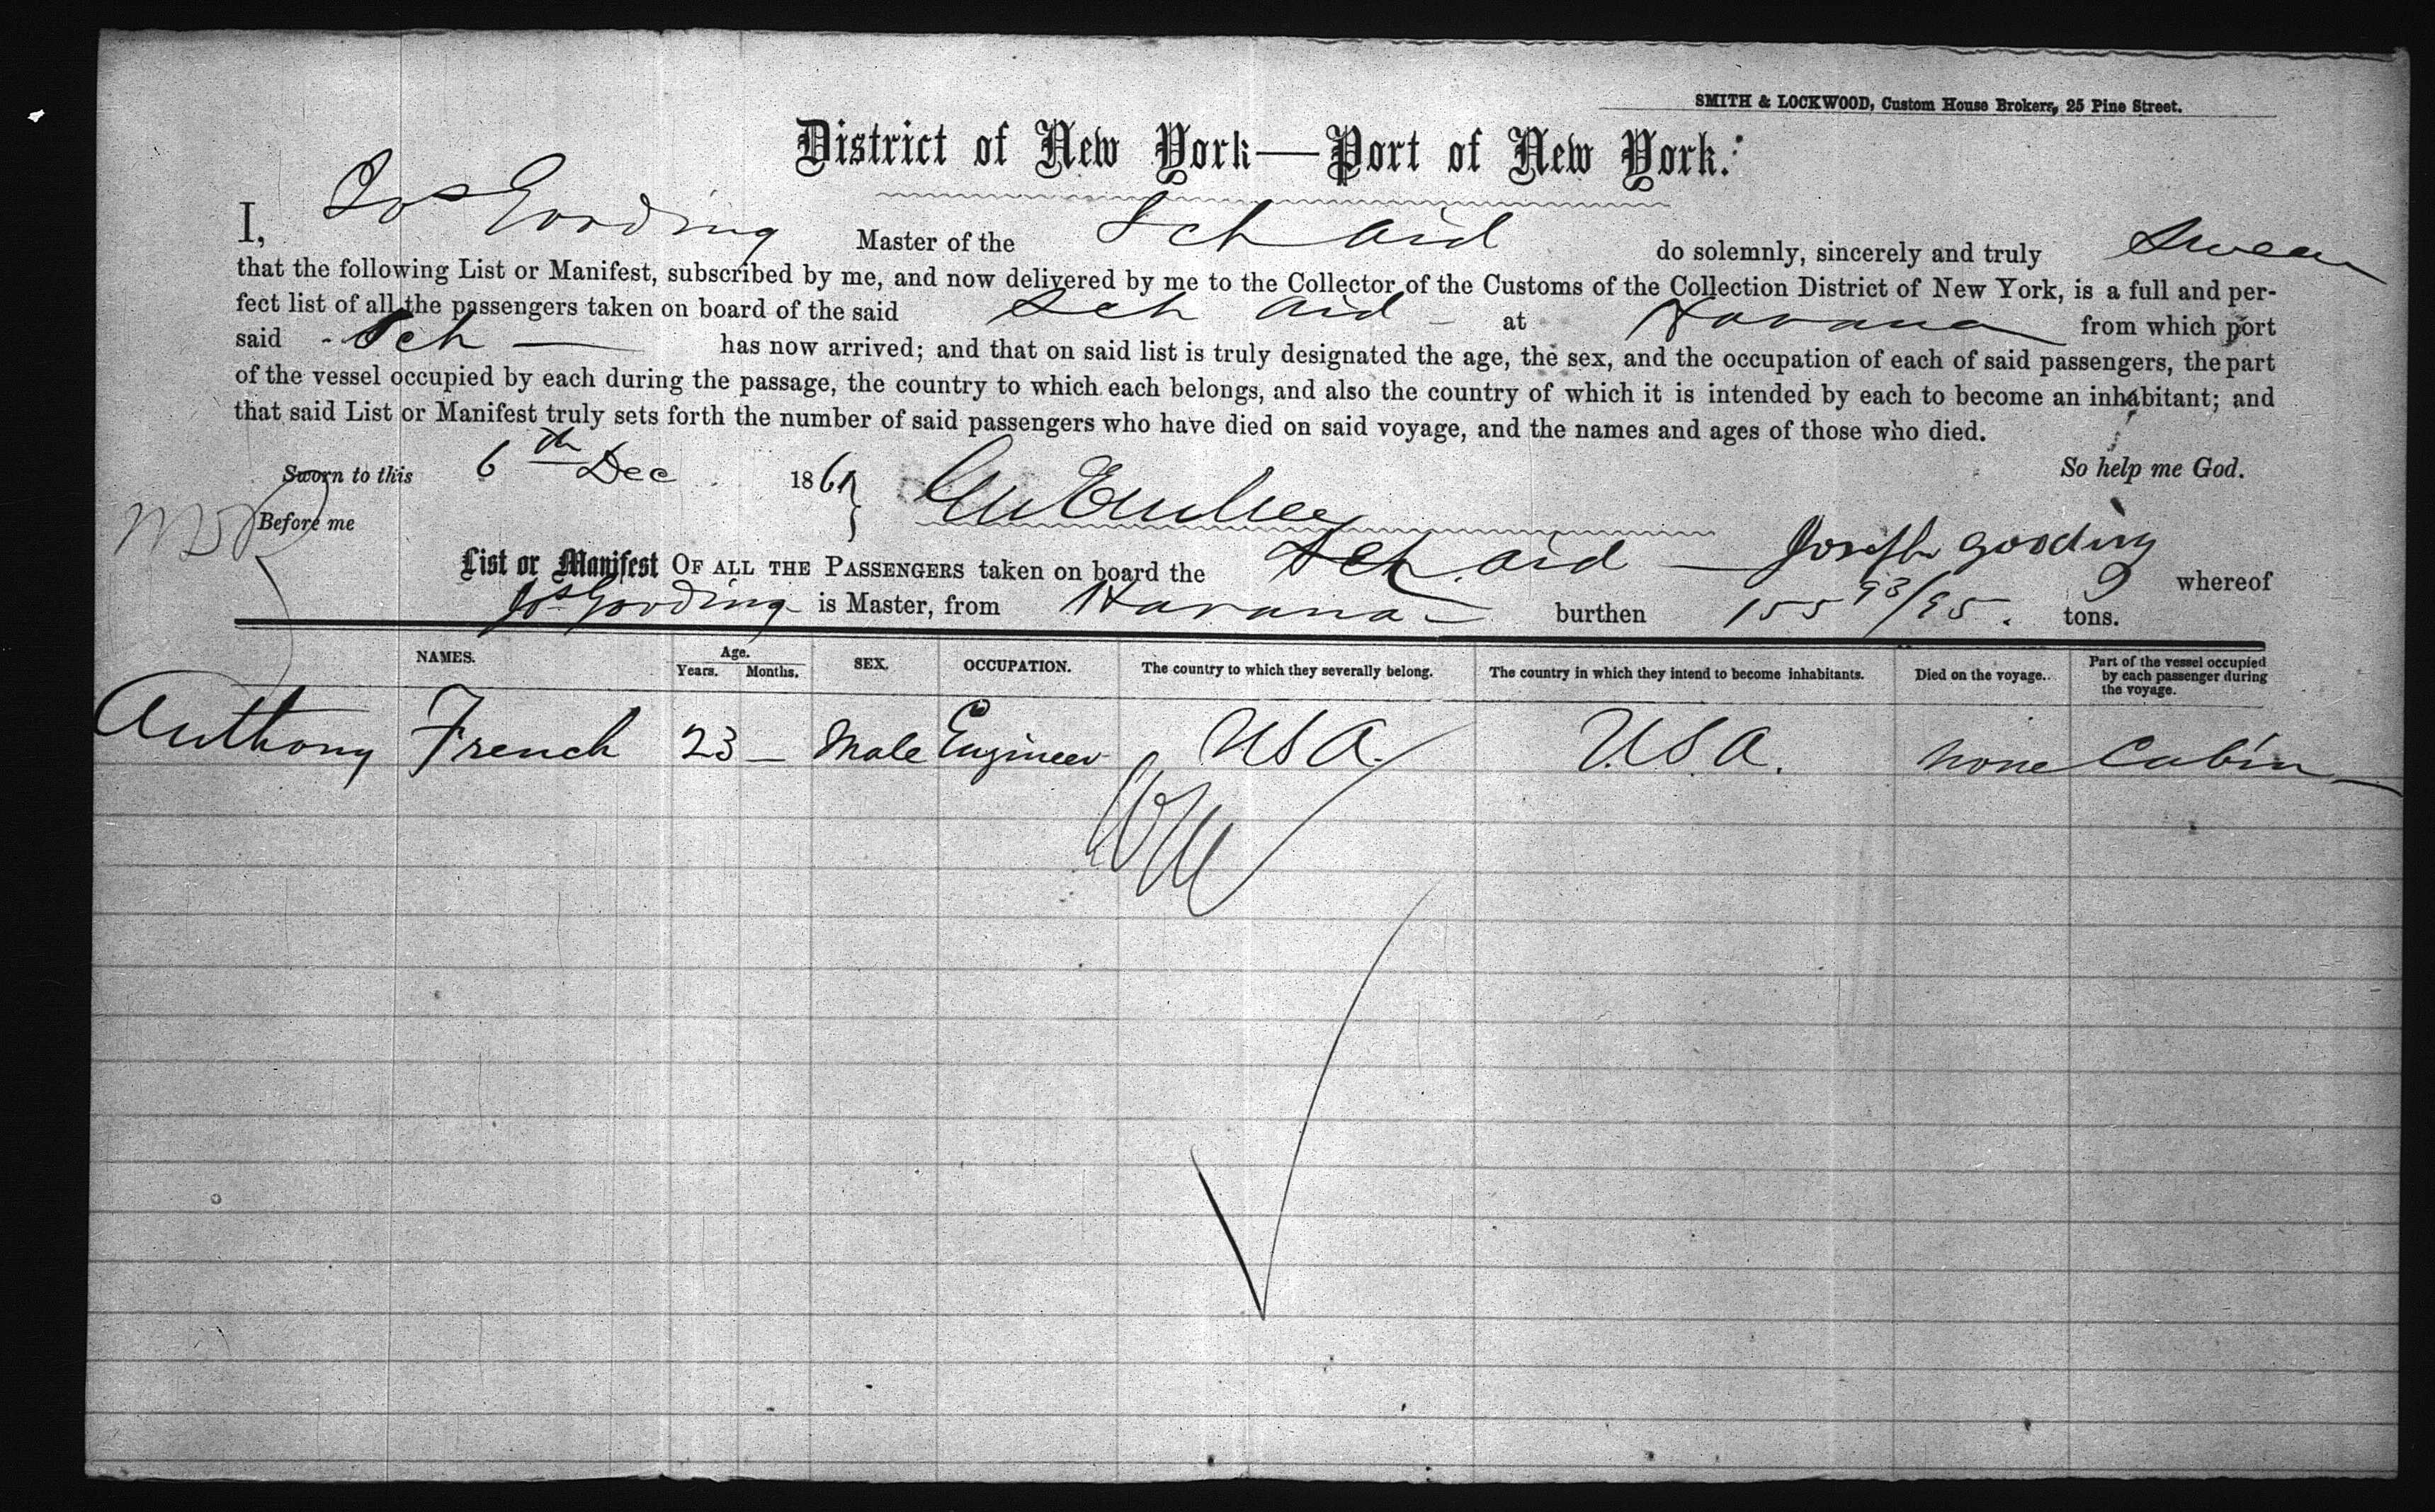 SMITH & LOCKWOOD, Custom House Brokers, 25 Pine Street.
District of New York—Port of New York.
I, Jos Gooding Master of the Sch Aid do solemnly, sincerely and truly Swear
that the following List or Manifest, subscribed by me, and now delivered by me to the Collector of the Customs of the Collection District of New York, is a full and per-
fect list of all the passengers taken on board of the said Sch Aid - at Havana from which port
said Sch — has now arrived; and that on said list is truly designated the age, the sex, and the occupation of each of said passengers, the part
of the vessel occupied by each during the passage, the country to which each belongs, and also the country of which it is intended by each to become an inhabitant; and
that said List or Manifest truly sets forth the number of said passengers who have died on said voyage, and the names and ages of those who died.
Sworn to this 6th Dec 1861 So help me God.
Before me
Joseph Gooding
List or Manifest OF ALL THE PASSENGERS taken on board the Sch Aid — whereof
Jos Gooding is Master, from Havana - burthen 155 93/95. tons.
NAMES. Age. Years. Months. SEX. OCCUPATION. The country to which they severally belong. The country in which they intend to become inhabitants. Died on the voyage. Part of the vessel occupied by each passenger during the voyage.
Anthony French 23 — Male Engineer USA. U.S.A. none Cabin